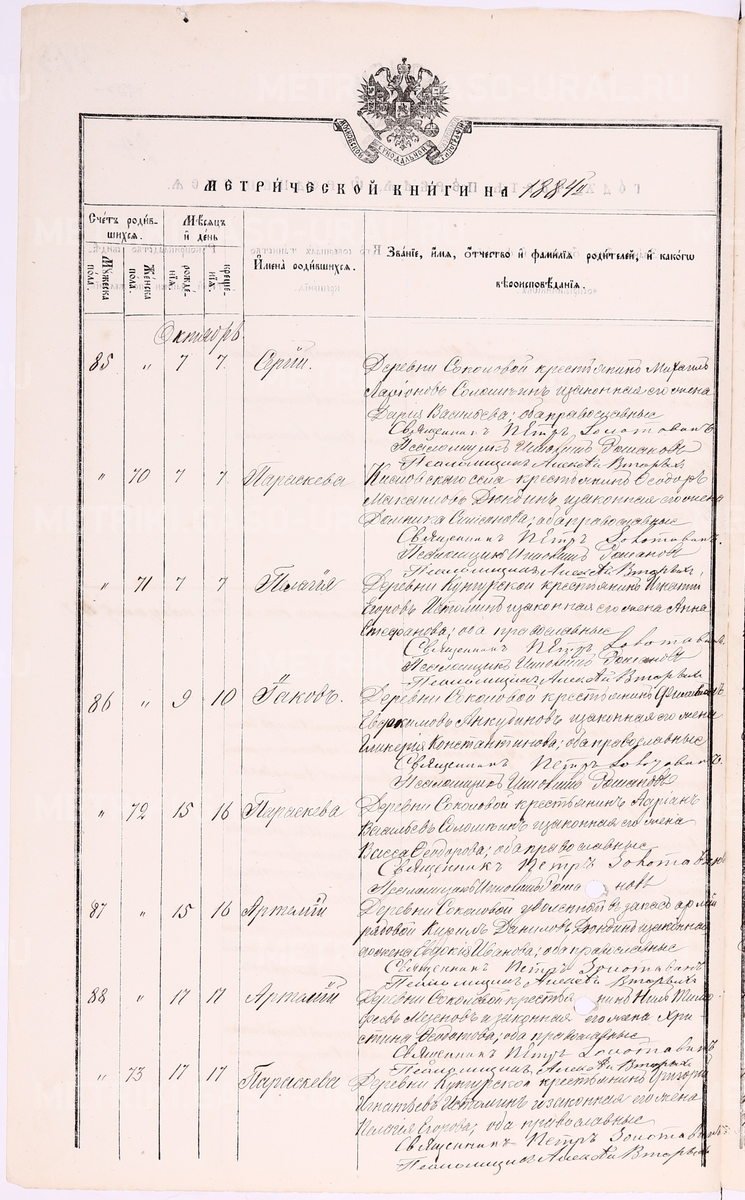 МОСКОВСКОЙ СѴНОДАЛЬНОЙ ТИПОГРАФІИ
МЕТРИЧЕСКОЙ КНИГИ НА 1884й
Счетъ родив-
шихся.
Мѣсяцъ
и день
Имена родившихся.
Званіе, имя, отчество и фамилія родителей, и какого
вѣроисповѣданія.
Мужеска
пола.
Женска
пола.
рожде-
нія.
креще-
нія.
Октябрь
85 „ 7 7 Сергій. Деревни Соколовой крестьянинъ Михаилъ
Ларіоновъ Соломкинъ и законная его жена
Дарія Васильева; оба православные
Священникъ Петръ Золотавинъ
Псаломщикъ
Псаломщикъ Алексѣй Вторыхъ
„ 70 7 7 Параскева крестьянинъ Ѳеодоръ
Максимовъ и законная его жена
Домника; оба православные
Священникъ Петръ Золотавинъ.
Псаломщикъ
Псаломщикъ Алексѣй Вторыхъ.
„ 71 7 7 Пелагія Деревни Кунгурской крестьянинъ Игнатій
Егоровъ Истоминъ и законная его жена Анна
Стефанова; оба православные
Священникъ Петръ Золотавинъ
Псаломщикъ
Псаломщикъ Алексѣй Вторыхъ
86 „ 9 10 Іаковъ. Деревни Соколовой крестьянинъ
Евдокимовъ Анкудиновъ и законная его жена
Гликерія Константинова; оба православные
Священникъ Петръ Золотавинъ
Псаломщикъ
„ 72 15 16 Параскева Деревни Соколовой крестьянинъ
Васильевъ Соломкинъ и законная его жена
Васса Ѳеодорова; оба православные
Священникъ Петръ Золотавинъ
Псаломщикъ
87 „ 15 16 Артемій Деревни Соколовой уволенный въ запасъ арміи
рядовой Даниловъ и законная
его жена Евдокія Иванова; оба православные
Священникъ Петръ Золотавинъ
Псаломщикъ Алексѣй Вторыхъ
88 „ 17 17 Артемій Деревни Соколовой крестьянинъ Нилъ Тимо-
феевъ Мезеновъ и законная его жена Хри-
стина; оба православные
Священникъ Петръ Золотавинъ
Псаломщикъ Алексѣй Вторыхъ
„ 73 17 17 Параскева Деревни Кунгурской крестьянинъ Григорій
Игнатьевъ Истоминъ и законная его жена
Пелагія Егорова; оба православные
Священникъ Петръ Золотавинъ
Псаломщикъ Алексѣй Вторыхъ